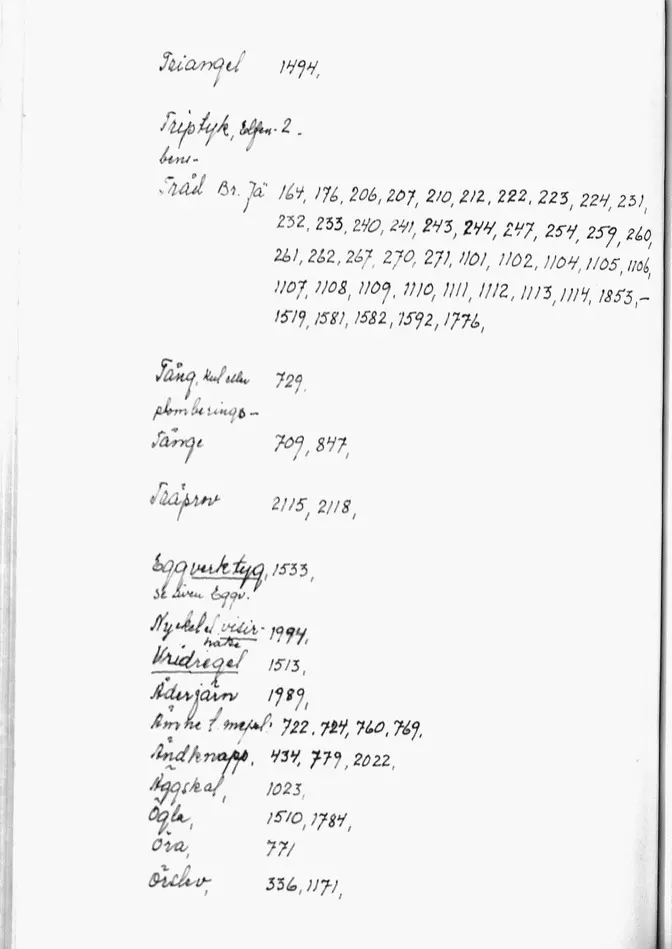 Triangel 1494,
Triptyk, Elfen- 2 -
bens-
Tråd Br. Jä 164, 176, 206, 207, 210, 212, 222, 223, 224, 231,
232, 233, 240, 241, 243, 244, 247, 254, 259, 260,
261, 262, 267, 270, 271, 1101, 1102, 1104, 1105, 1106,
1107, 1108, 1109, 1110, 1111, 1112, 1113, 1114, 1853,-
1519, 1581, 1582, 1592, 1776,
Tång, kul eller 729.
plomberings-
Tånge 709, 847,
Träprov 2115, 2118,
Eggverktyg, 1533,
se även Eggv.
Nyckel visir- 1994,
Vridregel 1513,
Åderjärn 1989,
Ämne t. mejsel: 722, 724, 760, 769,
Ändknapp, 434, 779, 2022,
Äggskal, 1023,
Ögla, 1510, 1784,
Öra, 771
Örslev, 336, 1171,